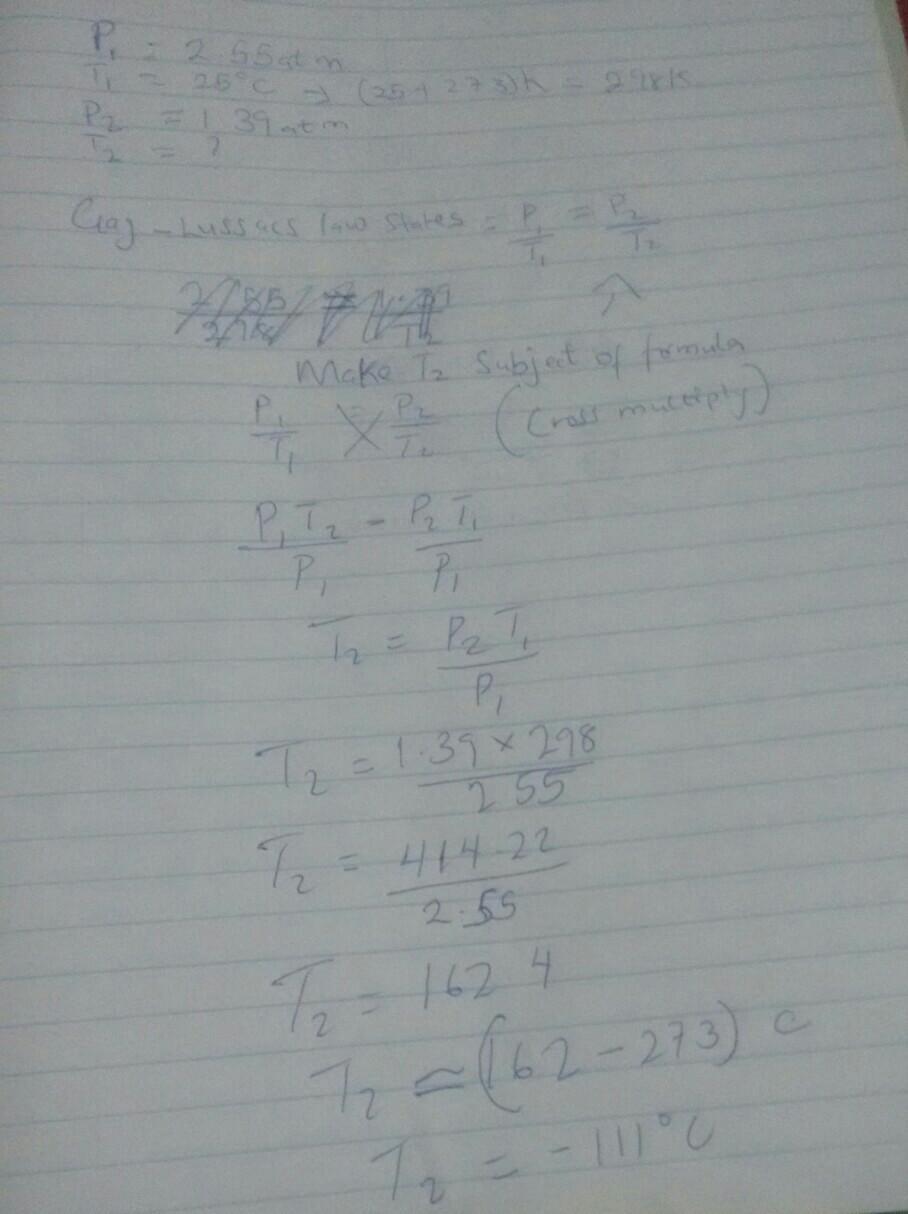 P₁ = 2.55atm
T₁ = 25°C → (25+273)k = 298K
P₂ = 1.39atm
T₂ = ?
Gay-Lussacs law states = P₁/T₁ = P₂/T₂
Make T₂ subject of formula
P₁/T₁ = P₂/T₂ (Cross multiply)
P₁T₂/P₁ = P₂T₁/P₁
T₂ = P₂T₁/P₁
T₂ = 1.39 × 298/2.55
T₂ = 414.22/2.55
T₂ = 162.4
T₂ = (162-273) c
T₂ = -111°C